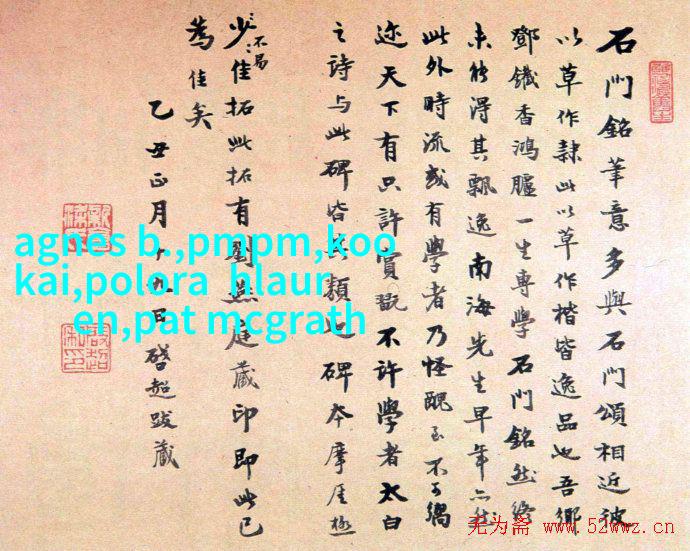 石門銘筆意多與石門頌相近彼
以草作隸此以草作楷皆逸品也吾鄉
鄧鐵香鴻臚一生專學石門銘然終
未能得其飄逸南海先生早年亦然
此外時流或有學者乃怪醜至不可嚮
迩天下有只許賞翫不許學者太白
之詩與此碑皆其類也碑本摩厓極
少佳拓此拓有劉燕庭藏印即此已
不易
為佳矣
乙丑正月十九日啓超跋藏
agnes b.,pmpm,koo
kai,polora hlaur
en,pat mcgrath
无为斋 www.52wwz.cn